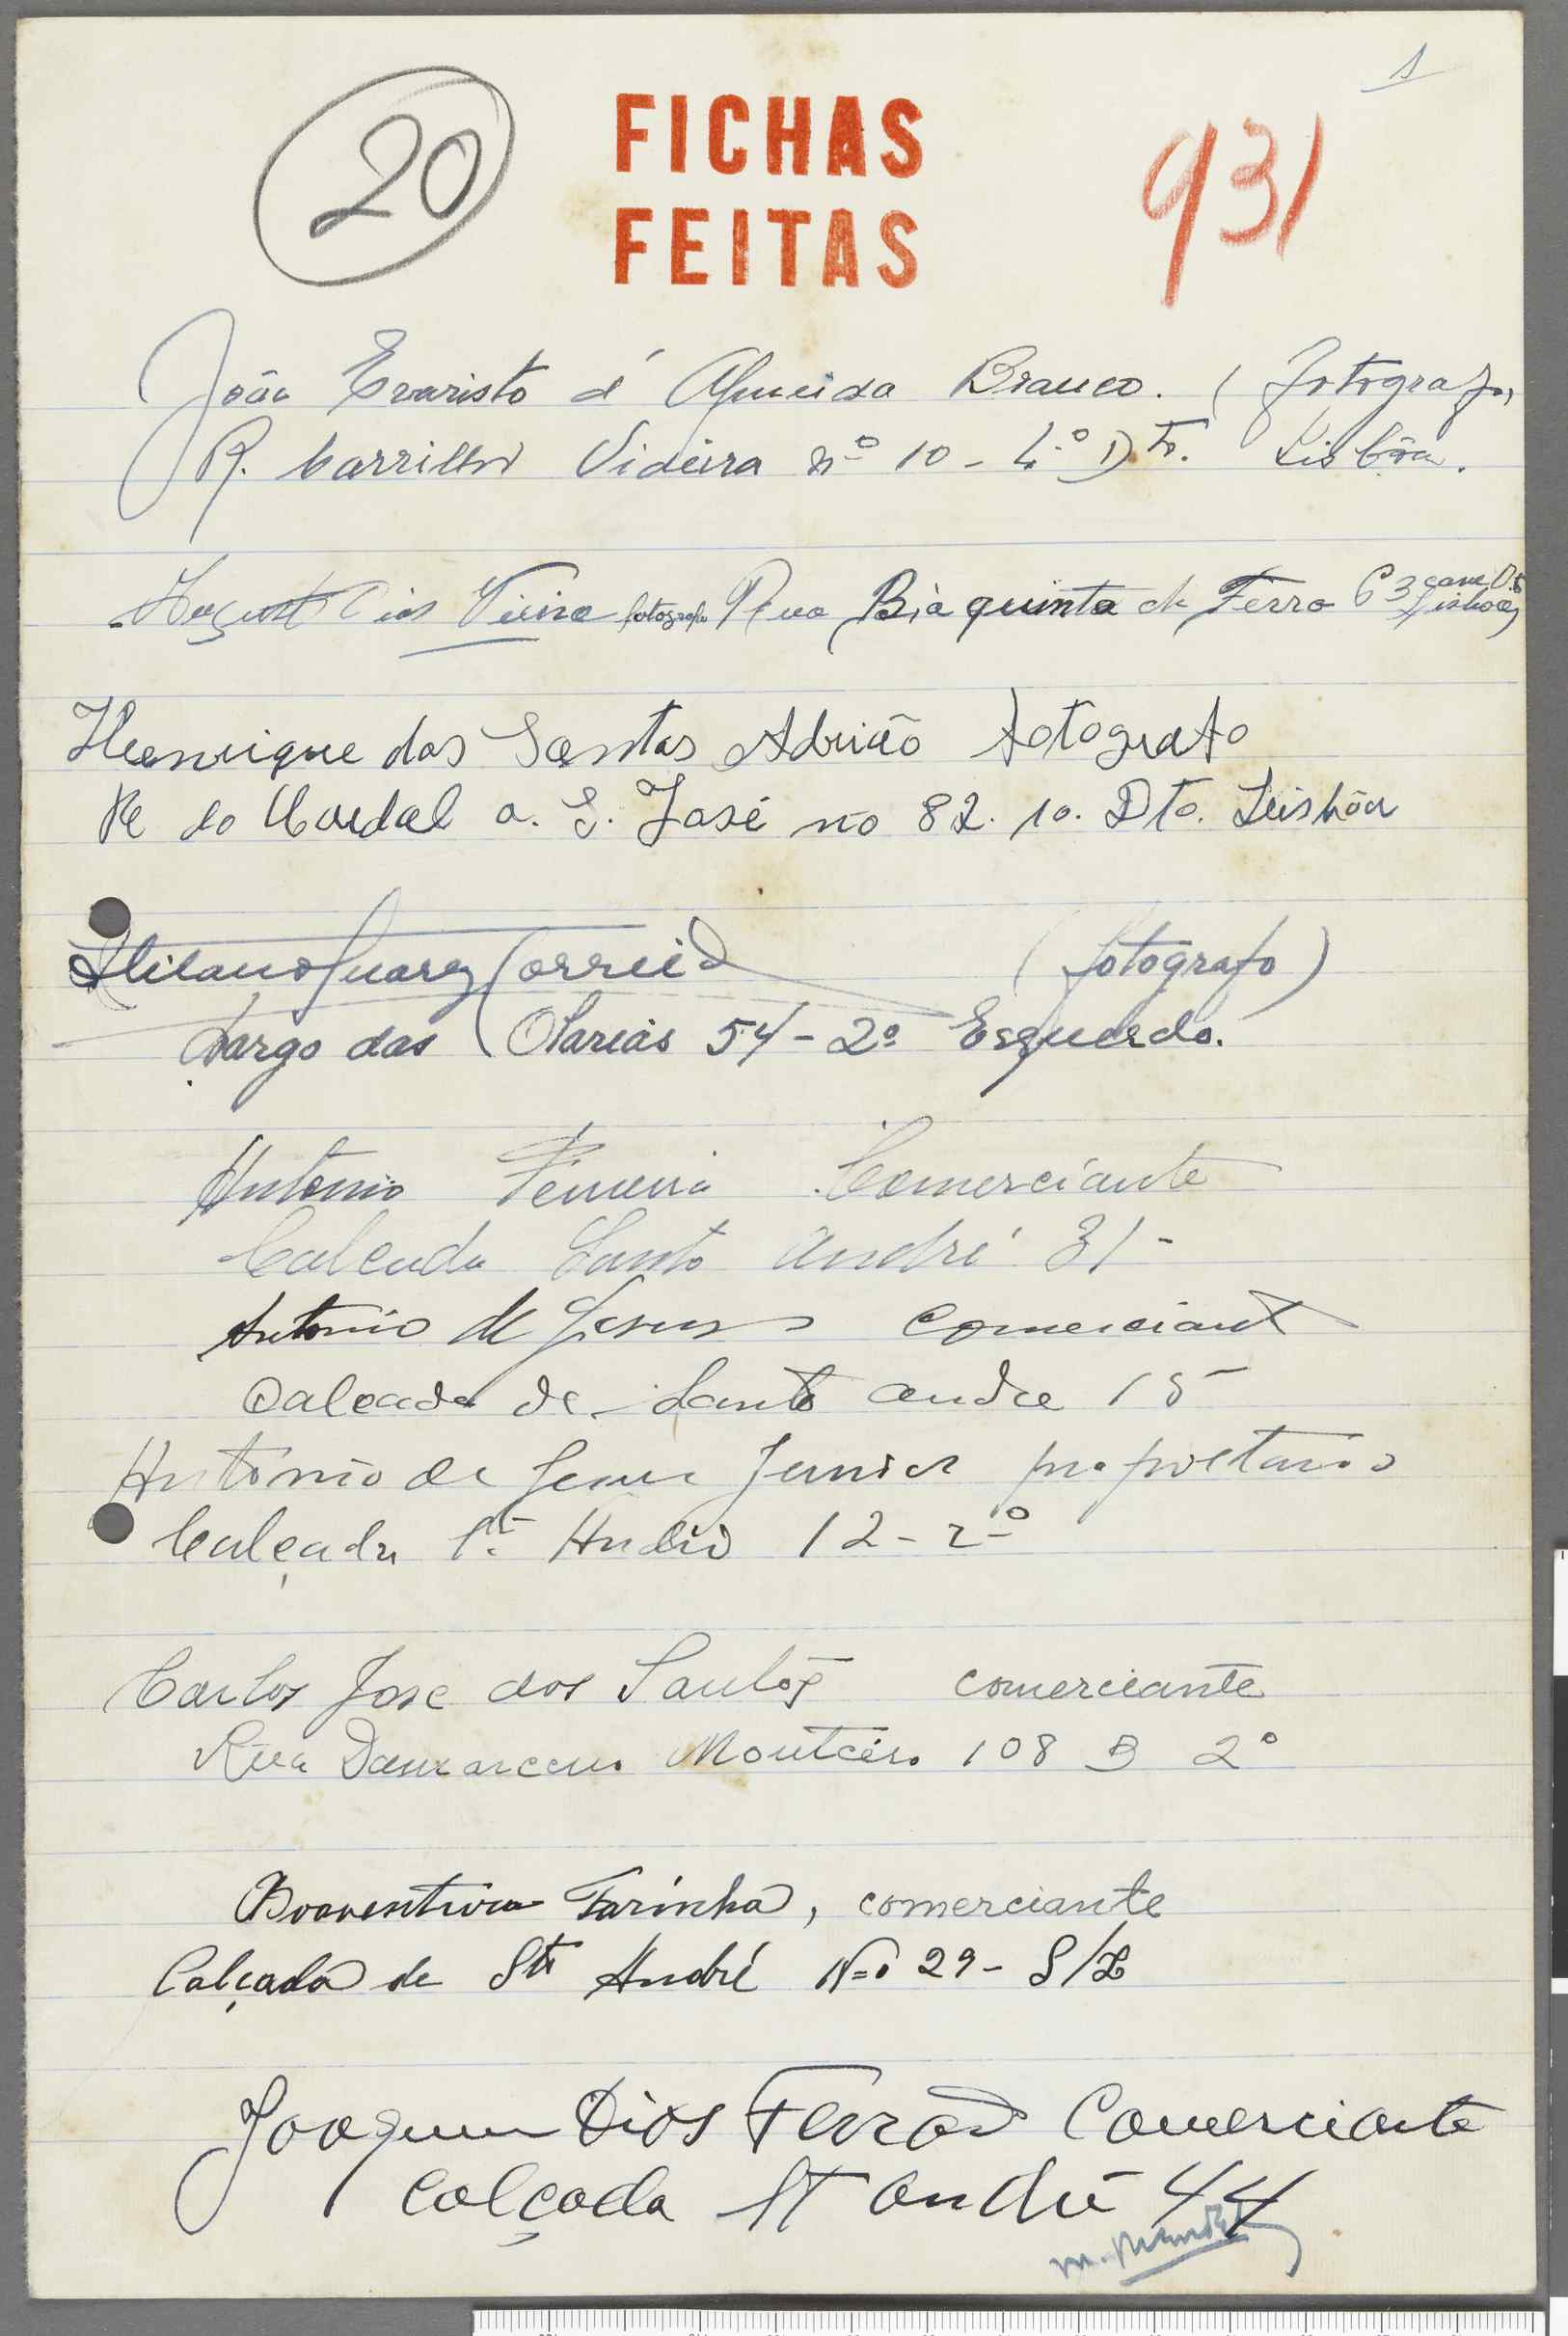 1
20
FICHAS
FEITAS
931
João Evaristo d'Almeida Branco. (fotografo,
R. Carrilho Videira nº 10 - 4.º Dto. Lisbôa.
Dias Vieira fotografo Rua B. à quinta do Ferro 63 cave Dto Lisboa
Henrique dos Santos Adrião fotografo
R do Cardal a. S. José no 82. 1o. Dto. Lisbôa
Correia (fotografo)
Largo das Olarias 54 - 2º Esquerdo.
Antonio Ferreira Comerciante
Calcada Santo André 31 -
Antonio de Jesus Comerciante
Calcada de Santo Andre 15
Antonio de Jesus Junior proprietario
Calçada St. André 12 - 2º
Carlos Jose dos Santos comerciante
Rua Damasceno Monteiro 108 B 2º
Boaventura Farinha, comerciante
Calçada de Stº André Nº 29 - S/L
Joaquim Dias Ferrão Comerciante
Calçada St André 44